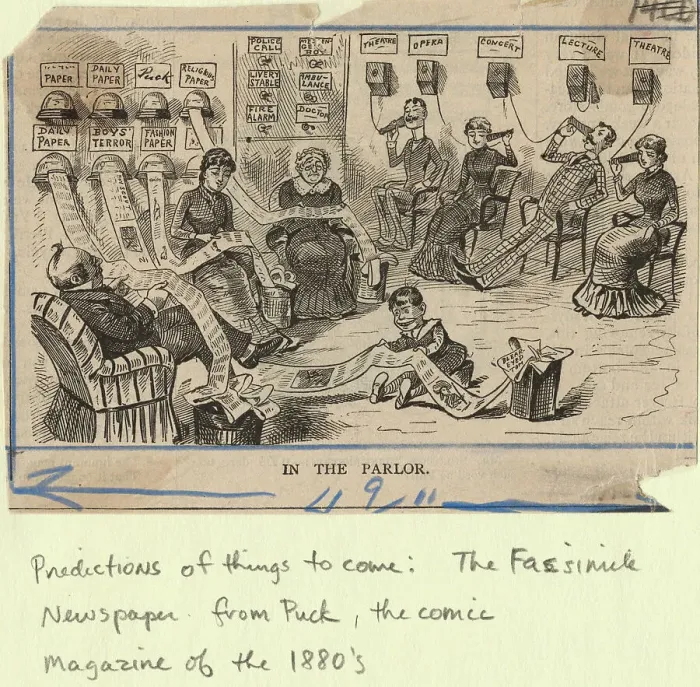 POLICE CALL
THEATRE
OPERA
CONCERT
LECTURE
THEATRE
PAPER
DAILY PAPER
Puck
RELIGIOUS PAPER
LIVERY STABLE
AMBU-LANCE
FIRE ALARM
DOCTOR
DAILY PAPER
BOYS' TERROR
FASHION PAPER
IN THE PARLOR.
49"
Predictions of things to come: The Facsimile
Newspaper. from Puck, the comic
Magazine of the 1880's